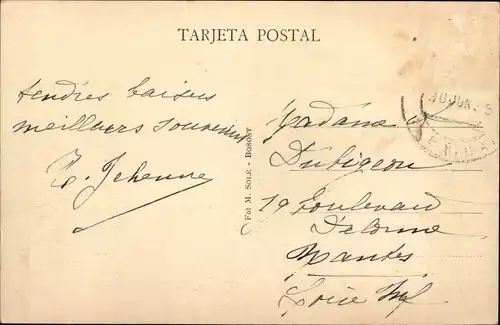 TARJETA POSTAL
tendres baisers
meilleurs souvenirs
Jehenne
Fot M. SOLÉ - BOSOST
30 JUN
Madame
Dubigeon
19 boulevard
Delorme
Nantes
Loire Inf